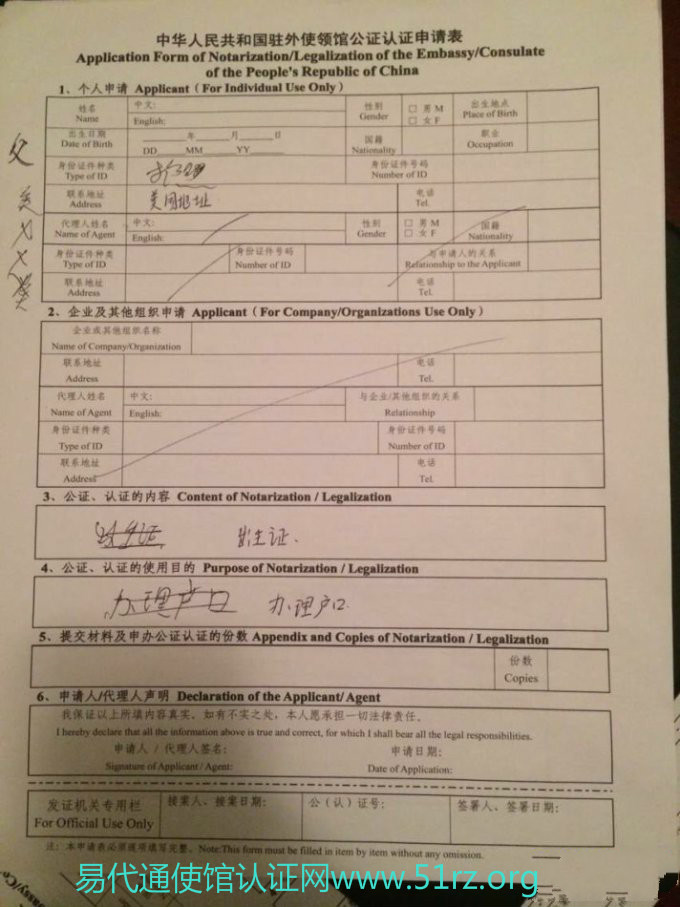 中华人民共和国驻外使领馆公证认证申请表
Application Form of Notarization/Legalization of the Embassy/Consulate
of the People's Republic of China
1、个人申请 Applicant ( For Individual Use Only )
姓名 中文: 性别 □ 男 M 出生地点
Name English: Gender □ 女 F Place of Birth
出生日期 年 月 日 国籍 职业
Date of Birth DD MM YY Nationality Occupation
身份证件种类 身份证件号码
Type of ID Number of ID
联系地址 美国地址 电话
Address Tel.
代理人姓名 中文: 性别 □ 男 M 国籍
Name of Agent English: Gender □ 女 F Nationality
身份证件种类 身份证件号码 与申请人的关系
Type of ID Number of ID Relationship to the Applicant
联系地址 电话
Address Tel.
父
2、企业及其他组织申请 Applicant ( For Company/Organizations Use Only )
企业或其他组织名称
Name of Company/Organization
联系地址 电话
Address Tel.
代理人姓名 中文: 与企业/其他组织的关系
Name of Agent English: Relationship
身份证件种类 身份证件号码
Type of ID Number of ID
联系地址 电话
Address Tel.
3、公证、认证的内容 Content of Notarization / Legalization
出生证.
4、公证、认证的使用目的 Purpose of Notarization / Legalization
办理户口 办理户口
5、提交材料及申办公证认证的份数 Appendix and Copies of Notarization / Legalization
份数
Copies
6、申请人/代理人声明 Declaration of the Applicant/ Agent
我保证以上所填内容真实。如有不实之处，本人愿承担一切法律责任。
I hereby declare that all the information above is true and correct, for which I shall bear all the legal responsibilities.
申请人 / 代理人签名: 申请日期:
Signature of Applicant / Agent: Date of Application:
发证机关专用栏 接案人、接案日期: 公（认）证号: 签署人、签署日期:
For Official Use Only
注: 本申请表必须逐项填写完整。Note:This form must be filled in item by item without any omission.
易代通使馆认证网www.51rz.org